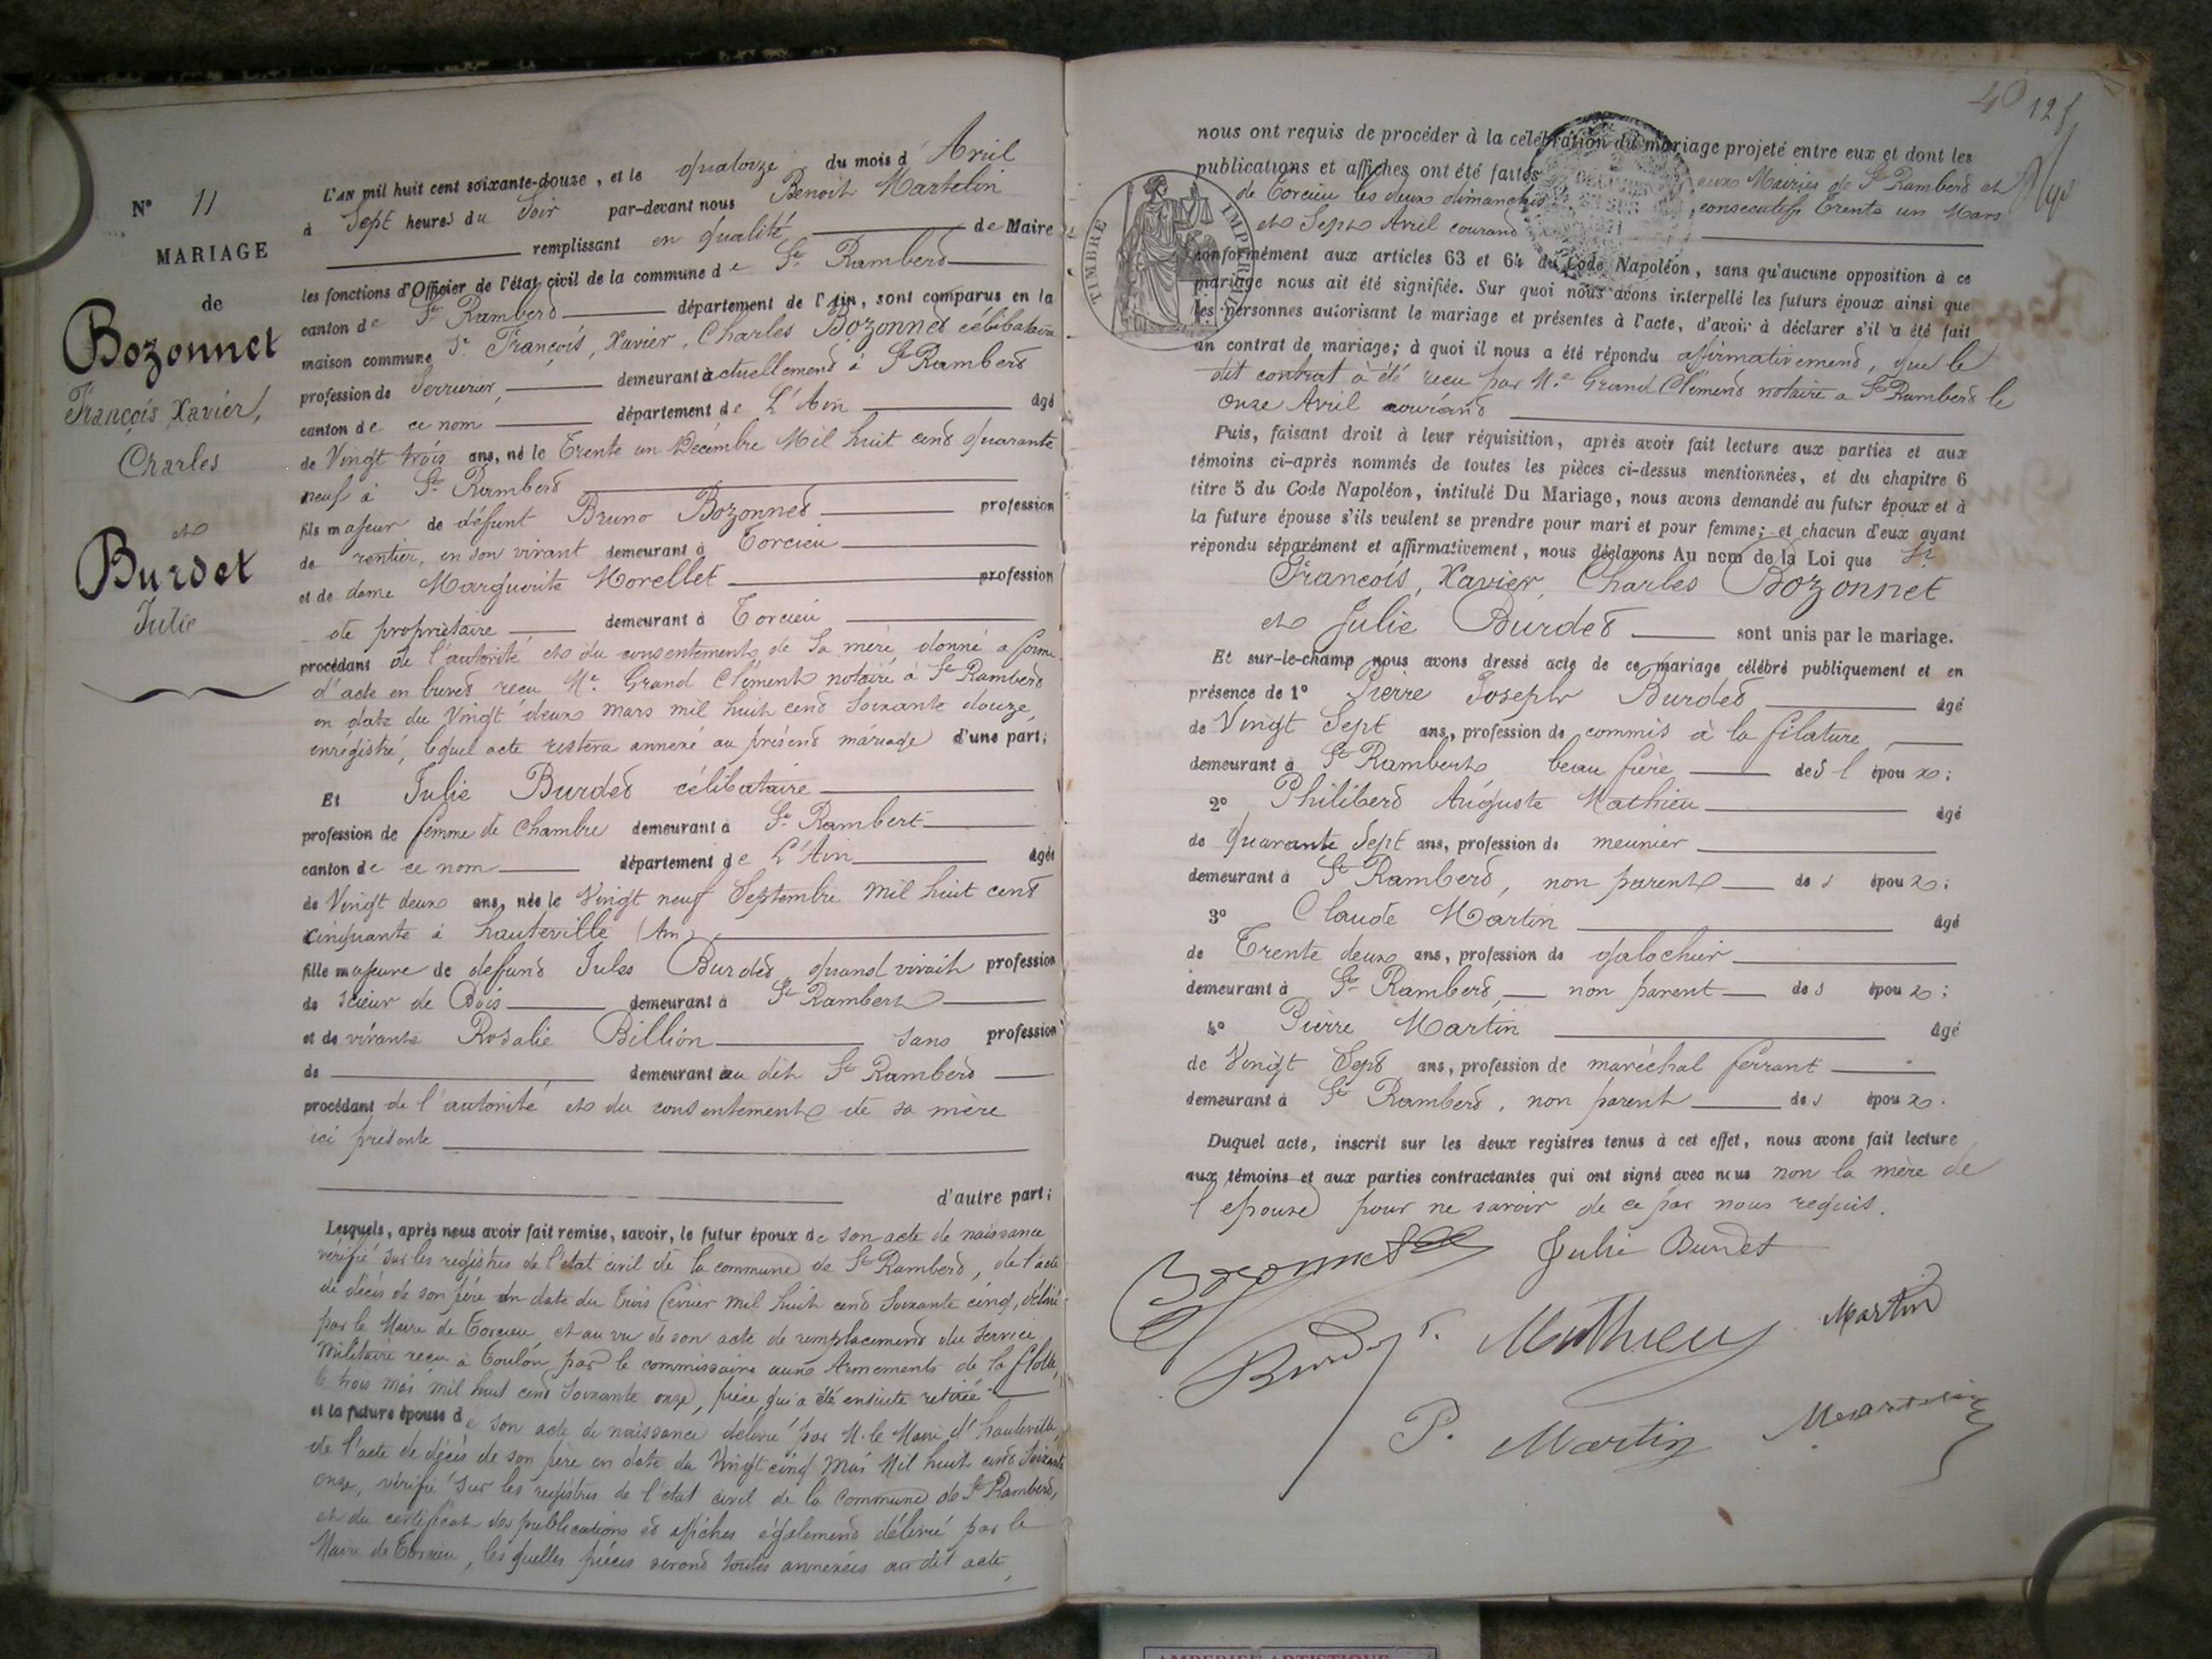 N° 11
MARIAGE
de
Bozonnet
François, Xavier,
Charles
et
Burdet
Julie
L'AN mil huit cent soixante-douze, et le quatorze du mois d'Avril
à Sept heures du Soir par-devant nous Benoit Martelin
remplissant en qualité de Maire
les fonctions d'Officier de l'état civil de la commune de St Rambert
canton de St Rambert département de l'Ain, sont comparus en la
maison commune Sr François, Xavier, Charles Bozonnet célibataire
profession de Serrurier, demeurant actuellement à St Rambert
canton de ce nom département de L'Ain âgé
de Vingt trois ans, né le Trente un Décembre Mil huit cent quarante
neuf à St Rambert
fils majeur de défunt Bruno Bozonnet profession
de rentier, en son vivant demeurant à Torcieu
et de dame Marguerite Morellet profession
de propriétaire demeurant à Torcieu
procédant de l'autorité et du consentement de Sa mère donné a forme
d'acte en brevet reçu Me Grand Clément notaire à St Rambert
en date du Vingt deux Mars mil huit cent Soixante douze,
enrégistré, lequel acte restera annexé au présent mariage d'une part;
Et Julie Burdet célibataire
profession de femme de Chambre demeurant à St Rambert
canton de ce nom département de L'Ain âgée
de Vingt deux ans, née le Vingt neuf Septembre Mil huit cent
cinquante à hauteville (Ain)
fille majeure de defunt Jules Burdet, quand vivait profession
de scieur de Bois demeurant à St Rambert
et de vivante Rosalie Billion sans profession
de demeurant au dit St Rambert
procédant de l'autorité et du consentement de sa mère
ici présente
d'autre part;
Lesquels, après nous avoir fait remise, savoir, le futur époux de son acte de naissance
vérifié sur les registres de l'état civil de la commune de St Rambert, de l'acte
de décès de son père en date du Trois février Mil huit cent Soixante cinq, délivré
par le Maire de Torcieu, et au vu de son acte de remplacement du Service
Militaire reçu à Toulon par le commissaire aux Armements de la flotte,
le trois mai mil huit cent Soixante onze, pièce qui a été ensuite retirée
et la future épouse de son acte de naissance délivré par M. le Maire d'hauteville,
de l'acte de décès de son père en date du Vingt cinq Mai Mil huit cent Soixante
onze, vérifié Sur les registres de l'état civil de la Commune de St Rambert,
et du certificat des publications et affiches également délivré par le
Maire de Torcieu, les quelles pièces seront toutes annexées au dit acte,
40 125
nous ont requis de procéder à la célébration du mariage projeté entre eux et dont les
publications et affiches ont été faites aux Mairies de St Rambert et
de Torcieu les deux dimanches consecutifs Trente un Mars
et Sept Avril courant
TIMBRE IMPERIAL
conformément aux articles 63 et 64 du Code Napoléon, sans qu'aucune opposition à ce
mariage nous ait été signifiée. Sur quoi nous avons interpellé les futurs époux ainsi que
les personnes autorisant le mariage et présentes à l'acte, d'avoir à déclarer s'il a été fait
un contrat de mariage; à quoi il nous a été répondu affirmativement, que le
dit contrat à été reçu par Me Grand Clément notaire a St Rambert le
Onze Avril courant
Puis, faisant droit à leur réquisition, après avoir fait lecture aux parties et aux
témoins ci-après nommés de toutes les pièces ci-dessus mentionnées, et du chapitre 6
titre 5 du Code Napoléon, intitulé Du Mariage, nous avons demandé au futur époux et à
la future épouse s'ils veulent se prendre pour mari et pour femme; et chacun d'eux ayant
répondu séparément et affirmativement, nous déclarons Au nom de la Loi que Sr
François, Xavier, Charles Bozonnet
et Julie Burdet sont unis par le mariage.
Et sur-le-champ nous avons dressé acte de ce mariage célébré publiquement et en
présence de 1° Pierre Joseph Burdet âgé
de Vingt Sept ans, profession de commis à la filature
demeurant à St Rambert beau frère de l'époux;
2° Philibert Auguste Mathieu âgé
de quarante Sept ans, profession de meunier
demeurant à St Rambert, non parent des époux;
3° Claude Martin âgé
de Trente deux ans, profession de galochier
demeurant à St Rambert, non parent des époux;
4° Pierre Martin âgé
de Vingt Sept ans, profession de maréchal ferrant
demeurant à St Rambert, non parent des époux.
Duquel acte, inscrit sur les deux registres tenus à cet effet, nous avons fait lecture
aux témoins et aux parties contractantes qui ont signé avec nous non la mère de
l'epouse pour ne savoir de ce par nous requis.
Bozonnet Julie Burdet
Burdet Mathieu Martin
P. Martin Martelin
AMBERIEU ARTISTIQUE